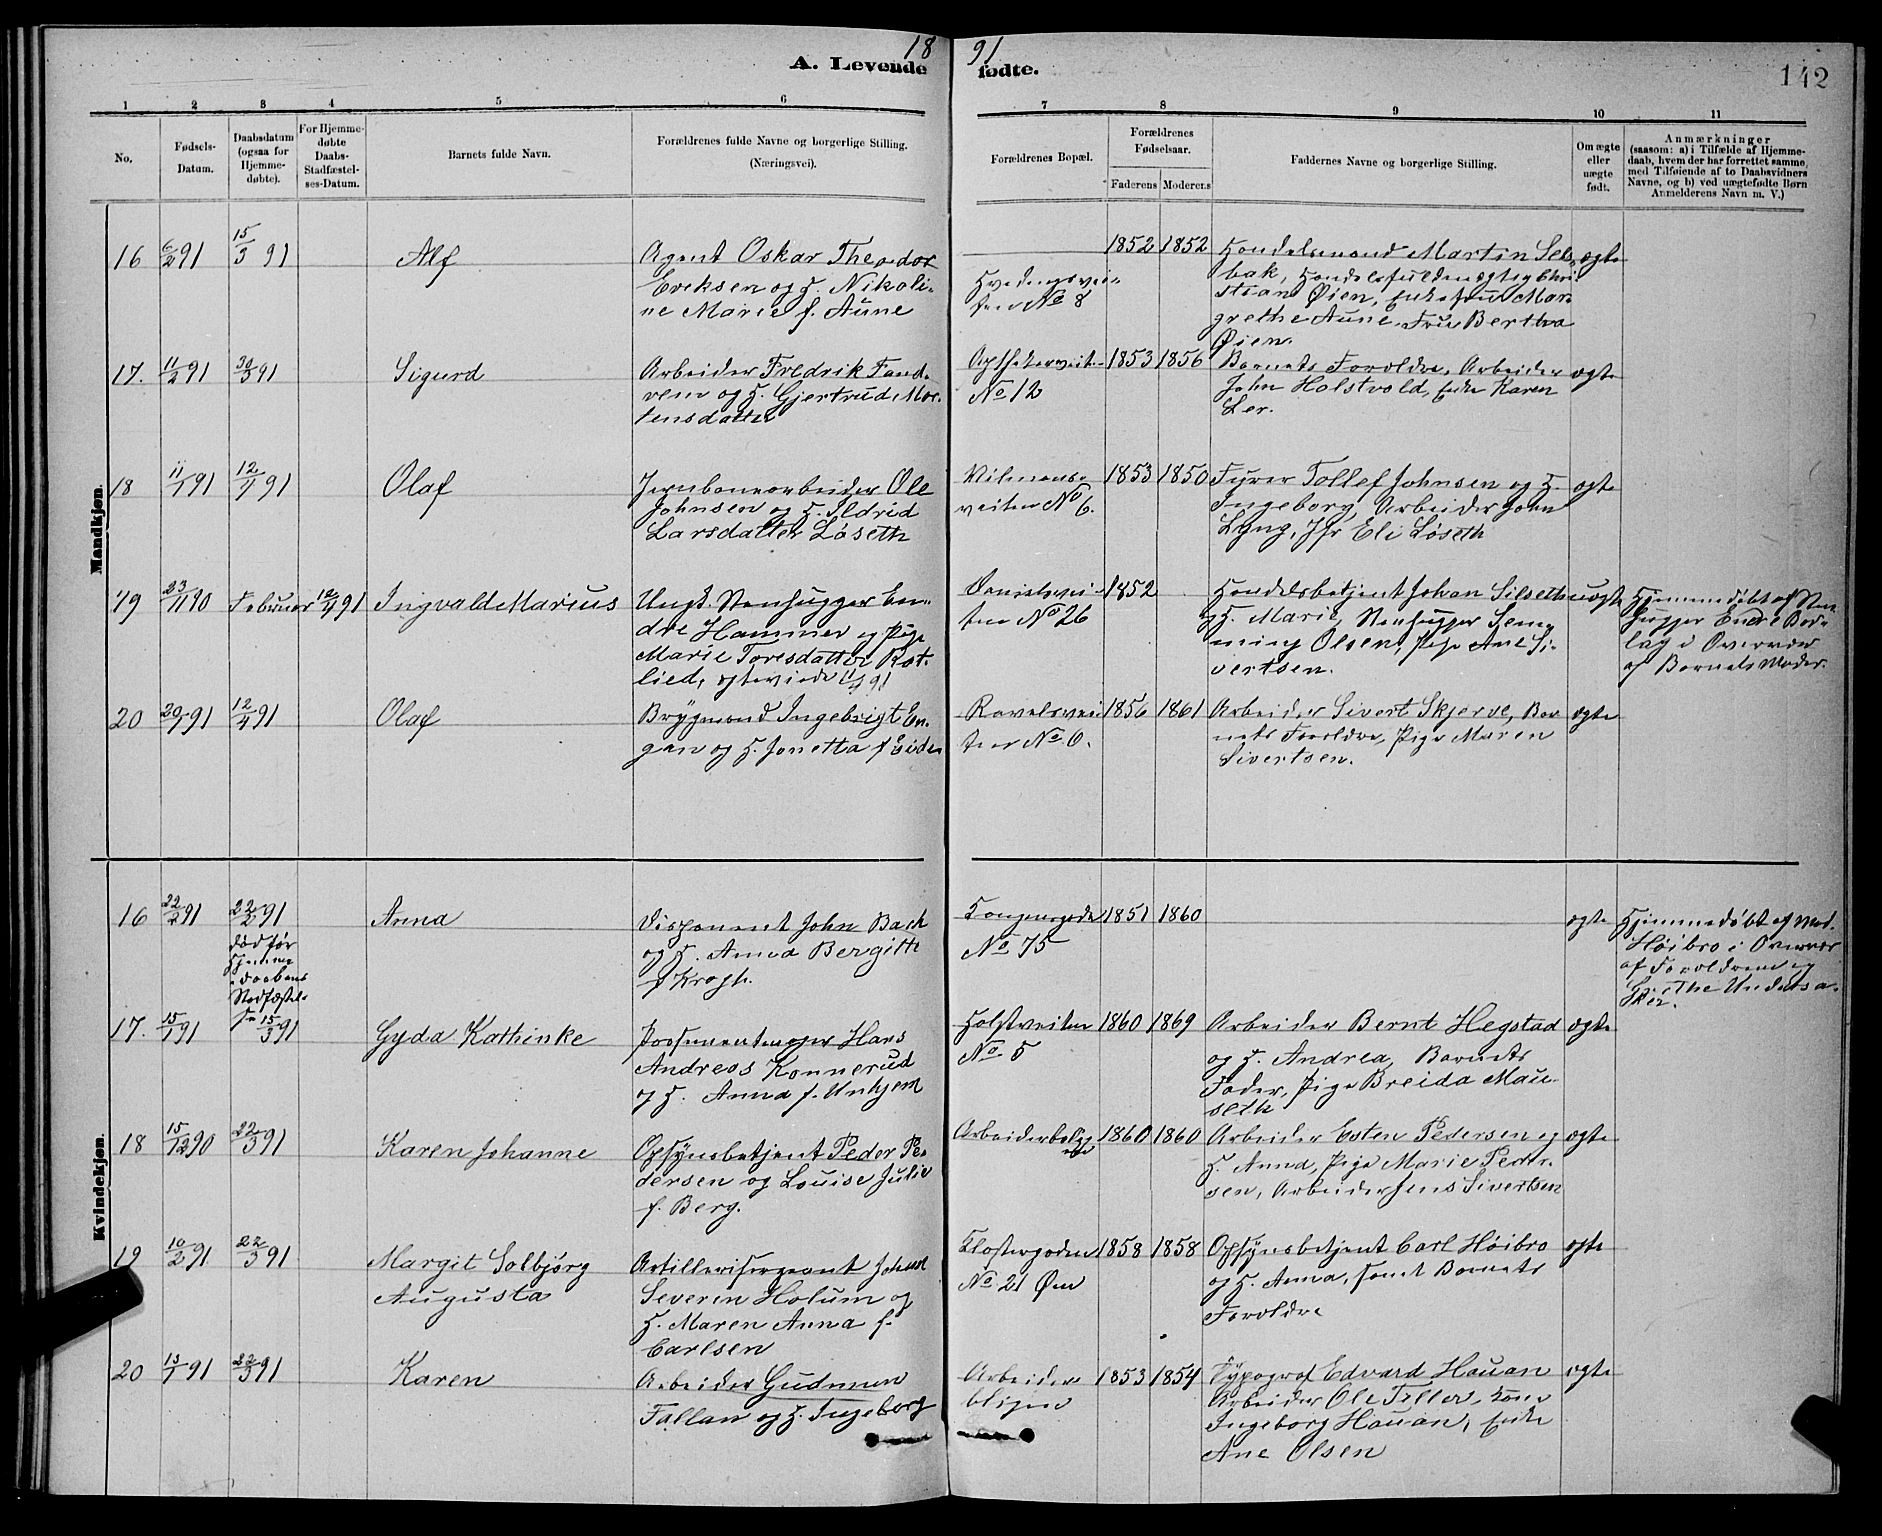 18 91
A. Levende fødte.
142
1 2 3 4 5 6 7 8 9 10 11
No.
Fødsels-
Datum.
Daabsdatum
(ogsaa for
Hjemme-
døbte).
For Hjemme-
døbte
Daabs-
Stadfæstel-
ses-Datum.
Barnets fulde Navn.
Forældrenes fulde Navne og borgerlige Stilling.
(Næringsvei).
Forældrenes Bopæl.
Forældrenes
Fødselsaar.
Faderens Moderens
Faddernes Navne og borgerlige Stilling.
Om ægte
eller
uægte
født.
Anmærkninger
(saasom: a) i Tilfælde af Hjemme-
daab, hvem der har forrettet samme,
med Tilføiende af to Daabsvidners
Navne, og b) ved uægtefødte Børn
Anmelderens Navn m. V.)
Mandkjøn.
16 6/2 91 15/3 91 Alf
Agent Oskar Theodor
Eriksen og H. Nikoli-
ne Marie f. Aune
No 8
1852 1852
Handelsmand Martin Sels-
bak, Handelsfuldmægtig Chri-
stian Øien, Enkefru Mar-
grethe Aune, Frue Bertha
Øien.
ægte
17. 11/2 91 30/3 91 Sigurd
Arbeider Fredrik Fand-
rem og H. Gjertrud Mor-
tensdatter
Apothekerveiten
No 12
1853 1856
Barnets Forældre, Arbeider
John Halstvold, Enke Karen
Ler.
ægte
18 11/1 91 12/4 91 Olaf
Jernbanearbeider Ole
Johnsen og H. Ildrid
Larsdatter Løseth
veiten No 6.
1853 1850
Fyrer Tollef Johnsen og H.
Ingeborg, Arbeider John
Lyng, Jfr Eli Løseth
ægte
19 23/11 90 Februar 12/4 91 Ingvald Marius
Ungk. Stenhugger En-
dre Hammer og Pige
Marie Toresdatter Rot-
lied, ægteviede 91
Danielsvei-
ten No 26
1852
Handelsbetjent Johan Silseth
og H. Marie, Stenhugger Hem-
ming Olsen, Pige Ane Si-
vertsen.
uægte
Hjemmedøbt af Sten-
hugger Endre Bør-
lag i Overvær
af Barnets Moder.
20 20/1 91 12/4 91 Olaf
Brygmand Ingebrigt En-
gan og H. Jonetta f. Eidem
Ravelsvei-
ten No 6.
1856 1861
Arbeider Sivert Skjerve, Bar-
nets Forældre, Pige Maren
Sivertsen.
ægte
Kvindekjøn.
16 22/2 91 22/2 91
død før
Hjemme-
daabens
Stadfæstel-
se
Anna
Disponent John Bach
og H. Anna Bergitte
f Krogh.
Kongensgade
No 75
1851 1860
ægte
Hjemmedøbt af Mad.
Høibro i Overvær
af Forældrene og
Grethe Undersa-
ker.
17. 15/1 91 15/3 91 Gyda Kathinke
Possementmager Hans
Andreas Konnerud
og H. Anna f. Unhjem
Holstveiten
No 5
1860 1869
Arbeider Bernt Hegstad
og H. Andrea, Barnets
Fader, Pige Breida Mau-
seth
ægte
18 15/12 90 22/3 91 Karen Johanne
Opsynsbetjent Peder Pe-
dersen og Louise Julie
f. Berg.
1860 1860
Arbeider Esten Pedersen og
H. Anna, Pige Marie Peder-
sen, Arbeider Jens Sivertsen
ægte
19 10/2 91 22/3 91 Margit Solbjørg
Augusta
Artillerisergeant Johan
Severin Holum og
H. Maren Anna f.
Carlsen
Klostergaden
No 21 Øen
1858 1858
Opsynsbetjent Carl Høibro
og H. Anna, samt Barnets
Forældre
ægte
20 13/1 91 22/3 91 Karen
Arbeider Gudmun
Fallan og H. Ingeborg
Arbeider
boligen
1853 1854
Typograf Edvard Hauan
Arbeider Ole Tiller, Kone
Ingeborg Hauan, Enke
Ane Olsen
ægte